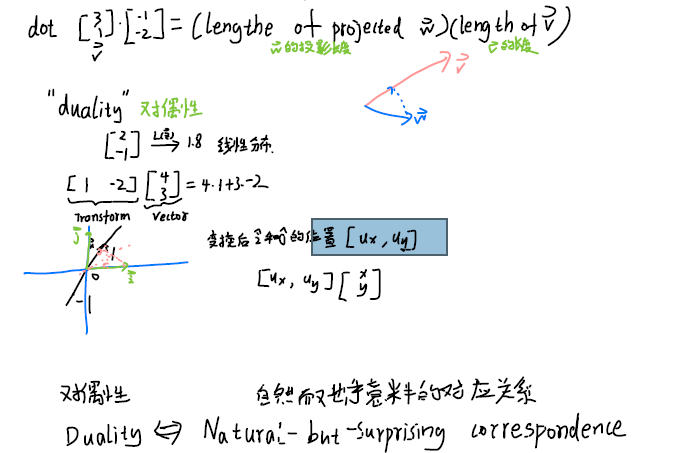 dot [3 1]·[-1 -2] = (lengthe of projected w⃗)(length of v⃗)
v⃗ w⃗的投影长度 v⃗的长度
v⃗
w⃗
"duality" 对偶性
[2 -1] L(v⃗)→ 1.8 线性分布.
[1 -2] [4 3] = 4·1+3·-2
Transform Vector
变换后 î和ĵ的位置 [ux, uy]
[ux, uy] [x y]
0
对偶性 自然而又出乎意料的对应关系
Duality ⇔ Natural-but-surprising correspondence